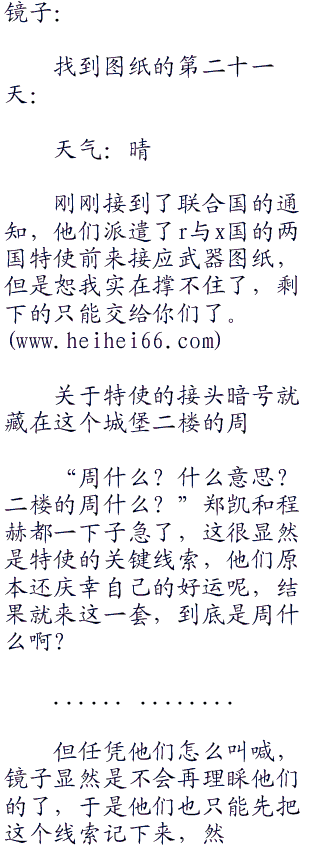 镜子：
找到图纸的第二十一
天：
天气：晴
刚刚接到了联合国的通
知，他们派遣了r与x国的两
国特使前来接应武器图纸，
但是恕我实在撑不住了，剩
下的只能交给你们了。
(www.heihei66.com)
关于特使的接头暗号就
藏在这个城堡二楼的周
“周什么？什么意思？
二楼的周什么？”郑凯和程
赫都一下子急了，这很显然
是特使的关键线索，他们原
本还庆幸自己的好运呢，结
果就来这一套，到底是周什
么啊？
...... ........
但任凭他们怎么叫喊，
镜子显然是不会再理睬他们
的了，于是他们也只能先把
这个线索记下来，然